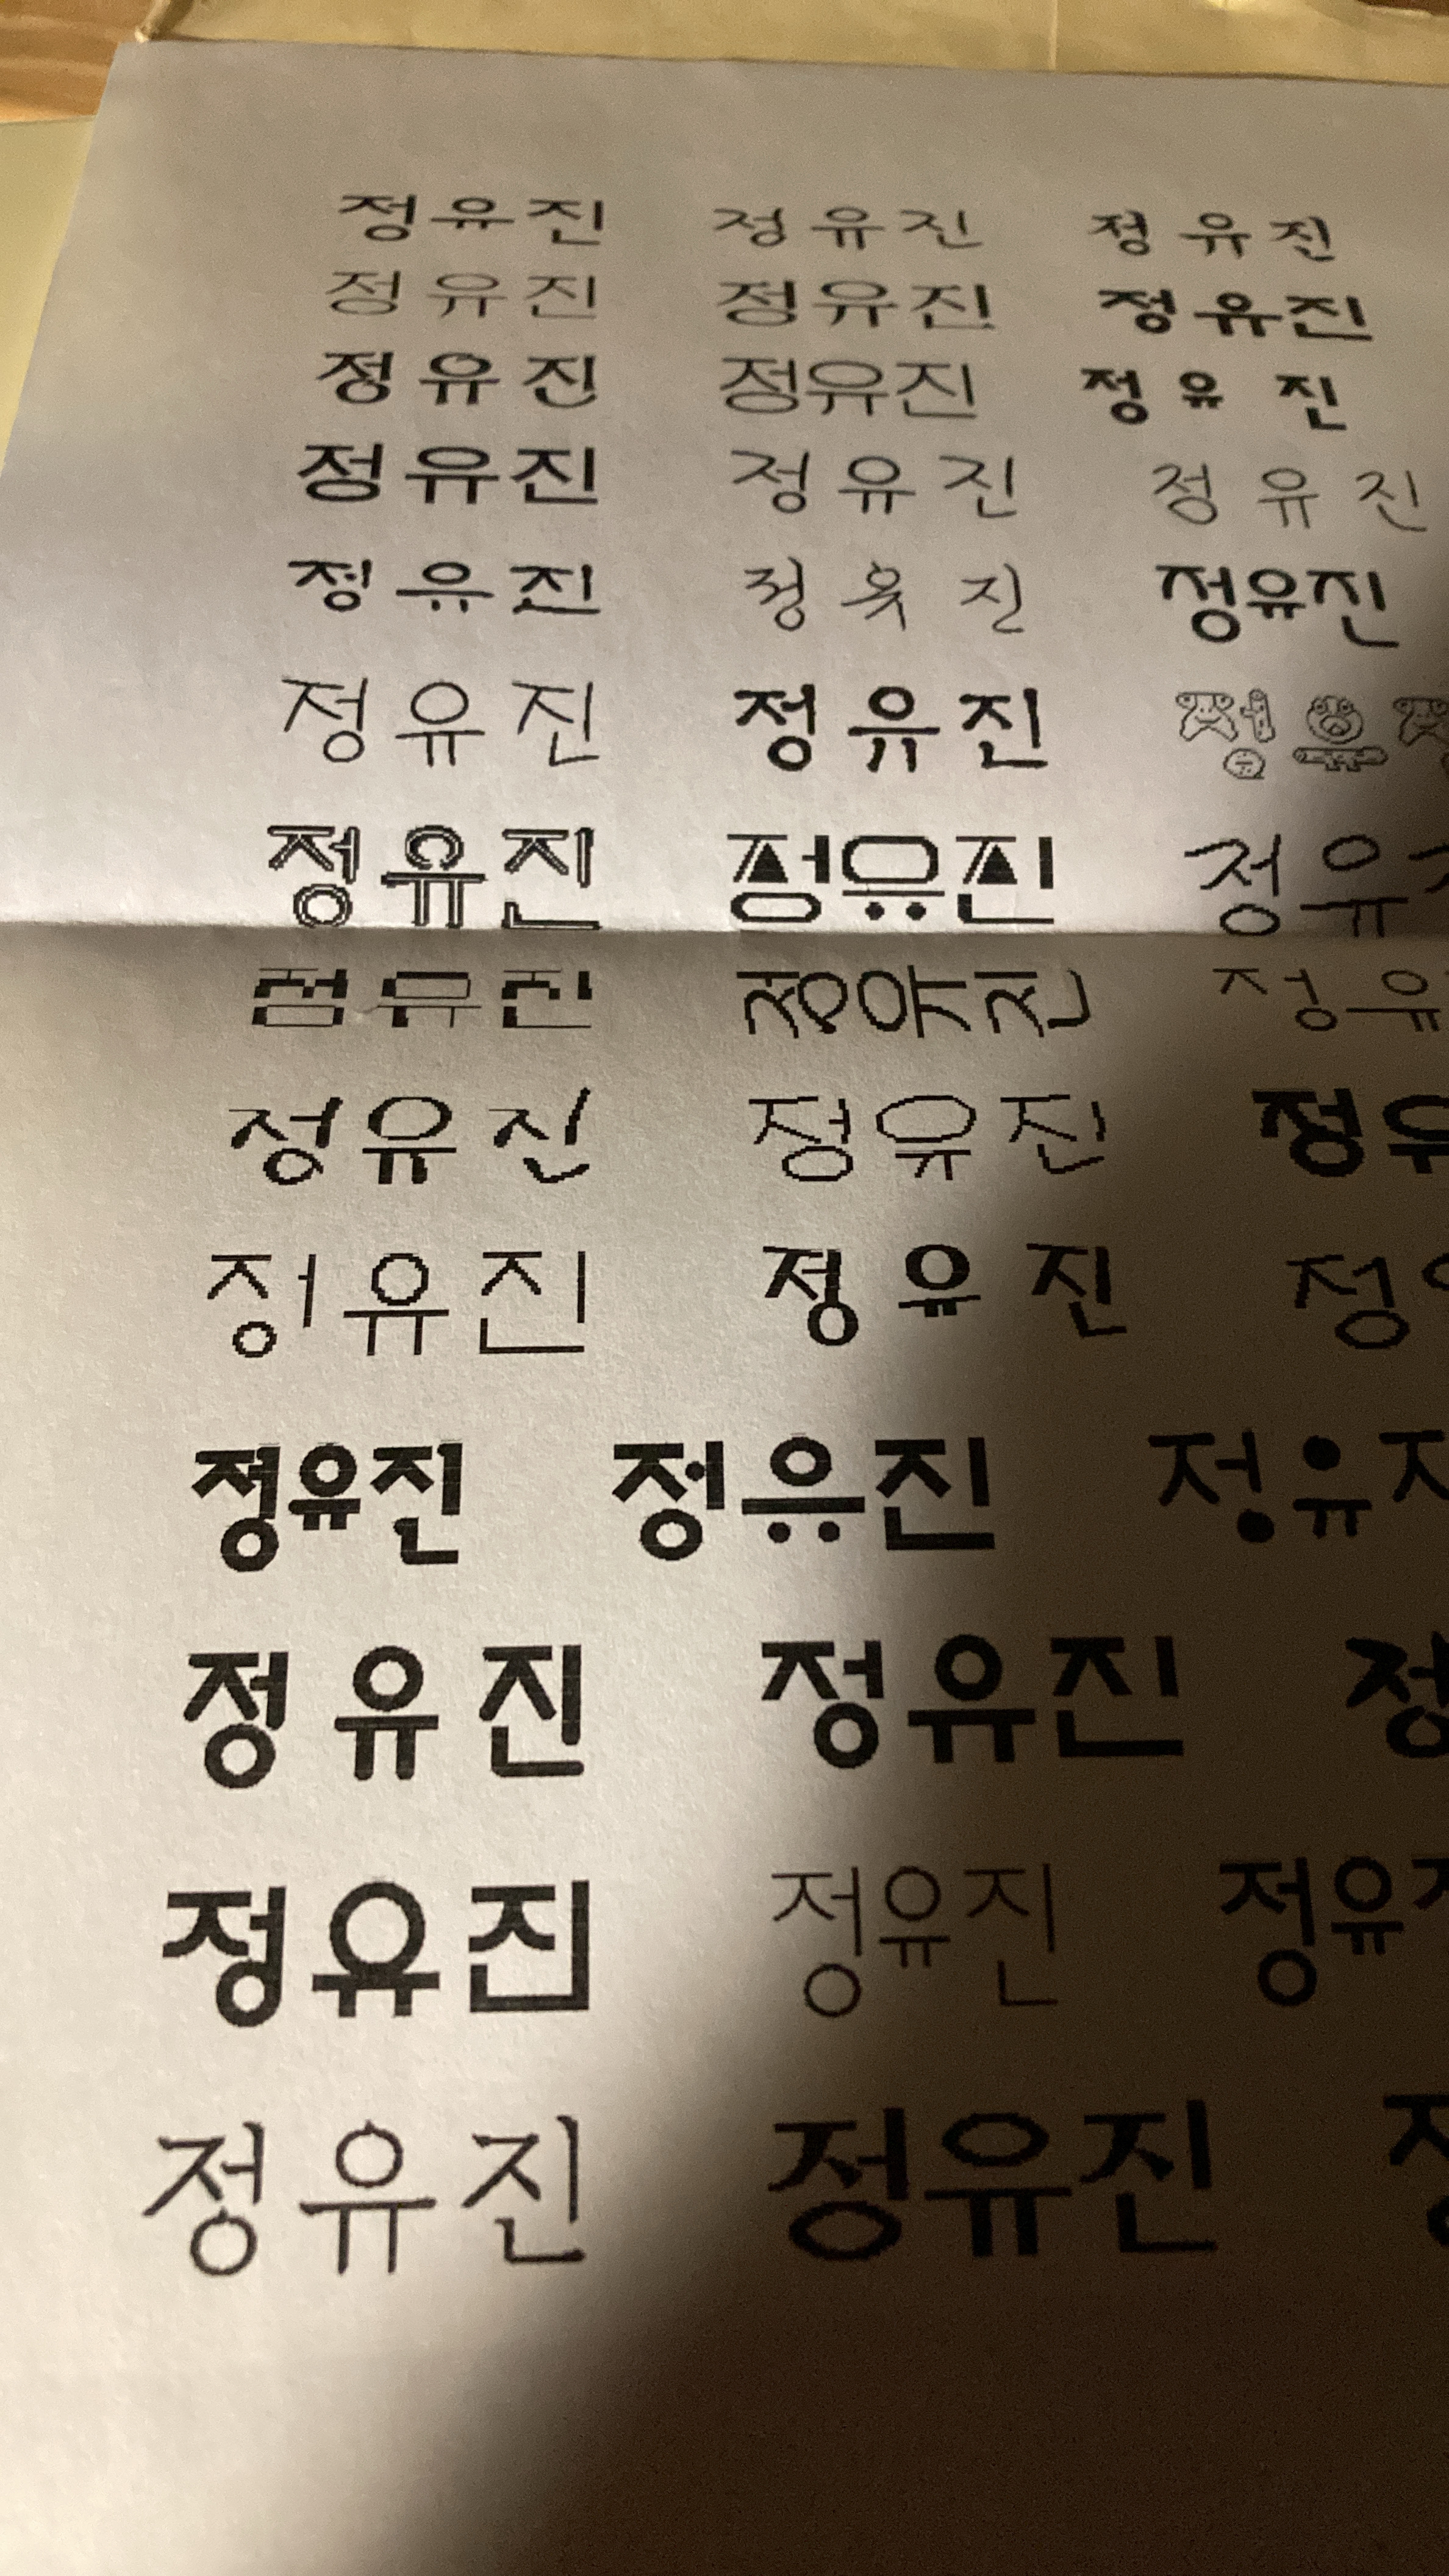 정유진 정유진 정유진
정유진 정유진 정유진
정유진 정유진 정유진
정유진 정유진 정유진
정유진 정유진 정유진
정유진 정유진 정유
정유진 정유진 정유
정유진 정유진 정유
정유진 정유진 정유
정유진 정유진 정
정유진 정유진 정유
정유진 정유진 정
정유진 정유진 정유
정유진 정유진